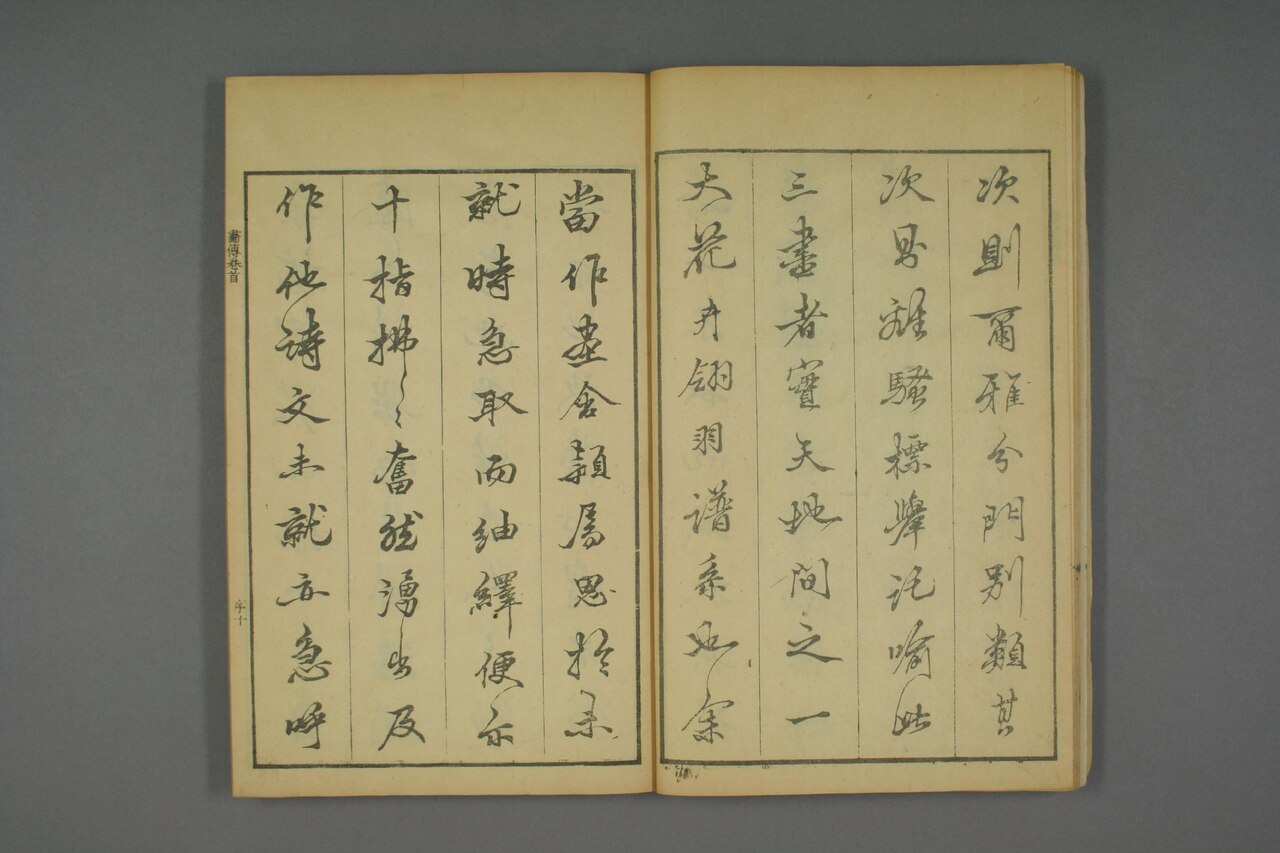 次則爾雅分門別類其
次曷離騷標舉託喻此
三書者實天地間之一
大花卉翎羽譜系也余
當作畫含穎屬思於未
就時急取而紬繹便亦
十指拂拂奮然湧出及
作他詩文未就亦急呼
畫傳卷首
序十